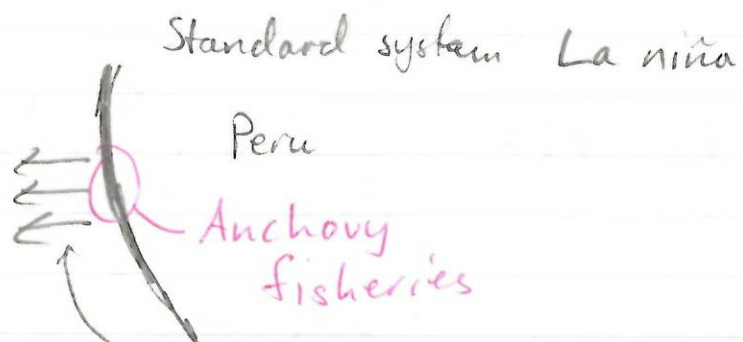 Standard system La niña
Peru
Anchovy
fisheries